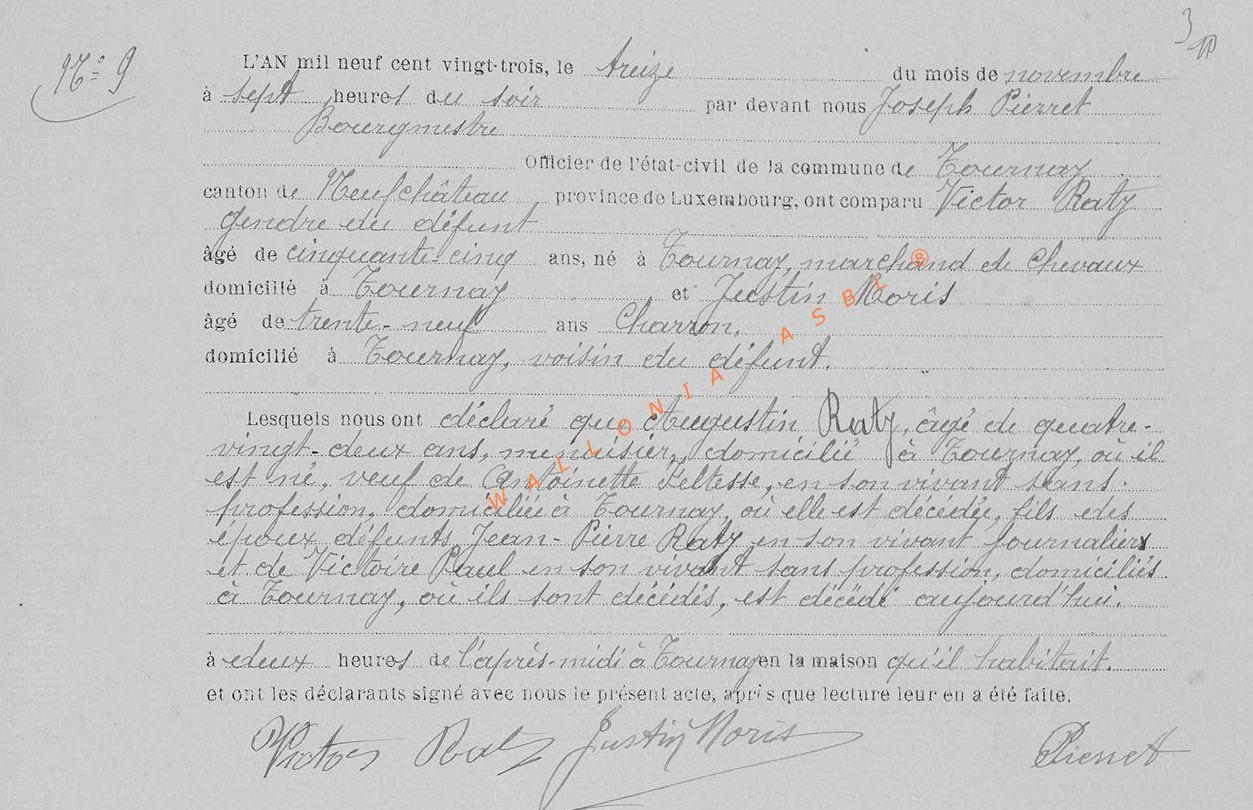 N° 9
L'AN mil neuf cent vingt-trois, le treize du mois de novembre
à sept heures du soir par devant nous Joseph Pierret
Bourgmestre
Officier de l'état-civil de la commune de Tournay
canton de Neufchâteau province de Luxembourg, ont comparu Victor Raty
gendre du défunt
âgé de cinquante-cinq ans, né à Tournay, marchand de chevaux
domicilié à Tournay et Justin Noris
âgé de trente-neuf ans Charron,
domicilié à Tournay, voisin du défunt.
Lesquels nous ont déclaré que Augustin Raty, âgé de quatre-
vingt-deux ans, menuisier, domicilié à Tournay, où il
est né, veuf de Antoinette Feltesse, en son vivant sans
profession, domiciliée à Tournay, où elle est décédée, fils des
époux défunts Jean-Pierre Raty en son vivant journaliers
et de Victoire Paul en son vivant sans profession, domiciliés
à Tournay, où ils sont décédés, est décédé aujourd'hui.
à deux heures de l'après-midi à Tournay en la maison qu'il habitait.
et ont les déclarants signé avec nous le présent acte, après que lecture leur en a été faite.
Victor Raty Justin Noris Pierret
WALLONIA ASBL ®